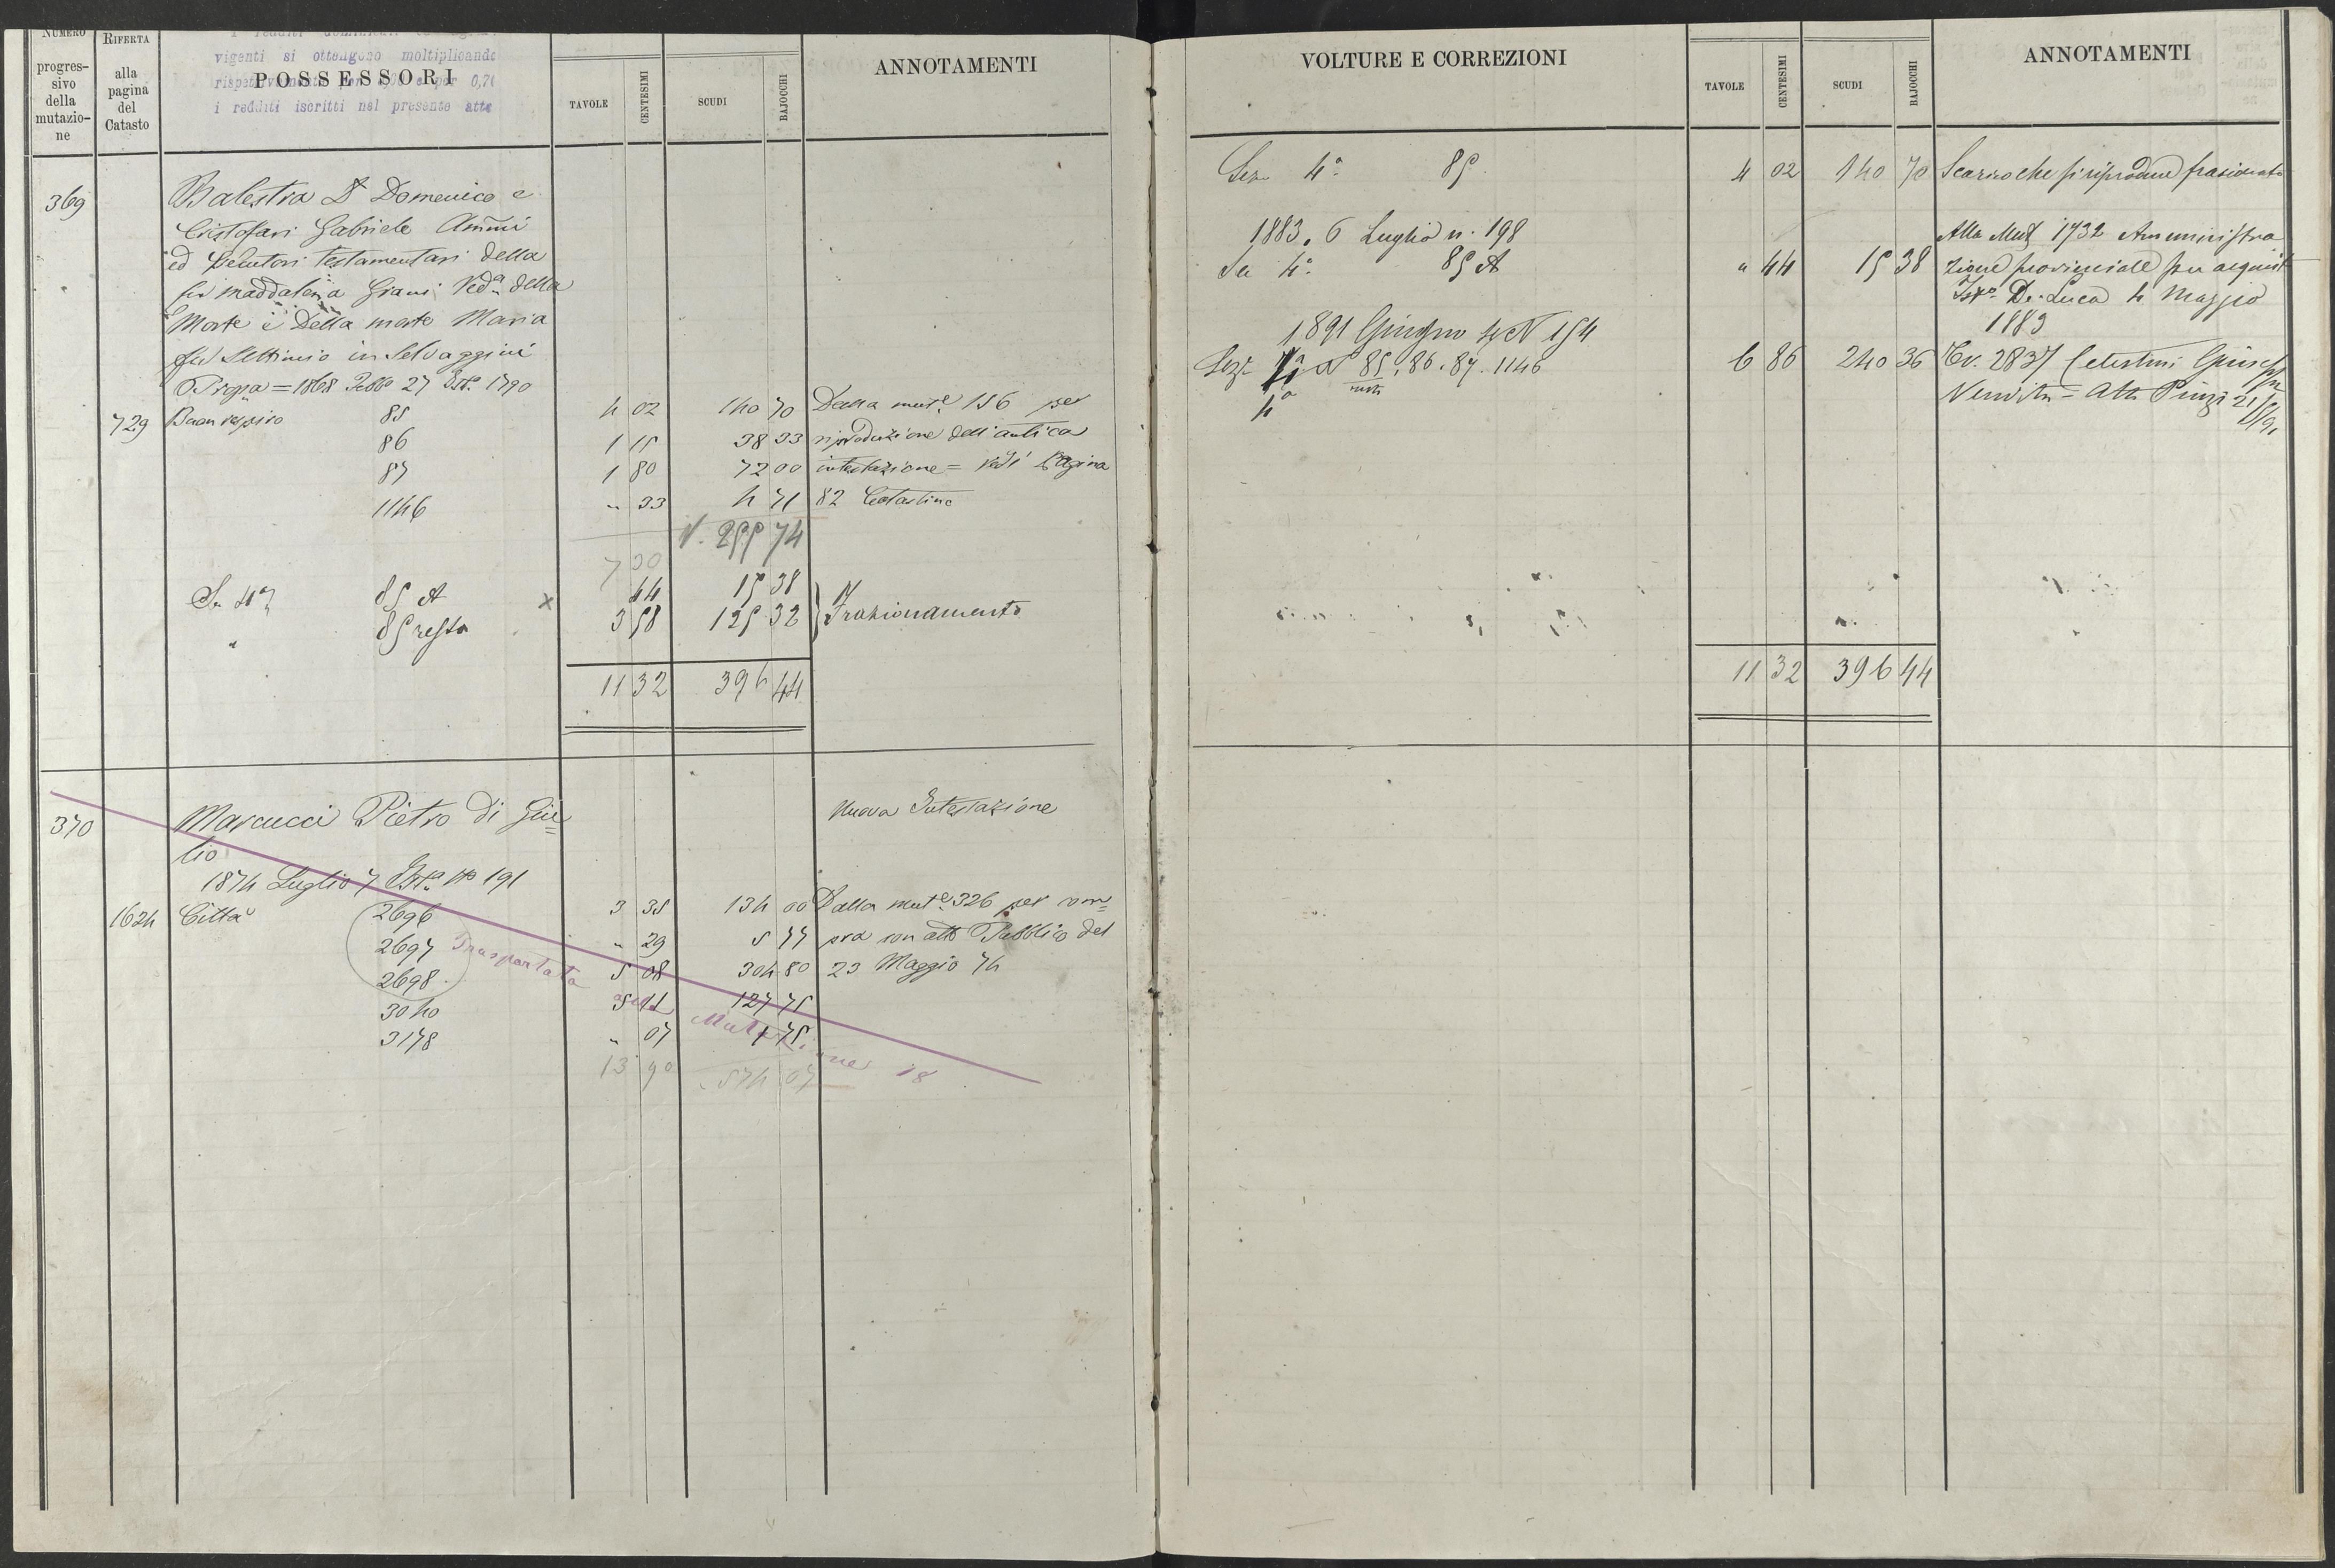 NUMERO
progres-
sivo
della
mutazio-
ne
RIFERTA
alla
pagina
del
Catasto
vigenti si ottengono moltiplicando
POSSESSORI
i redditi iscritti nel presente atto
TAVOLE
CENTESIMI
SCUDI
BAJOCCHI
ANNOTAMENTI
369
Balestra Dr Domenico e
Cristofari Gabriele Ammi
ed Esecutori testamentari della
fu Maddalena Grani Veda della
Morte e Della morte Maria
fu Settimio in Selvaggini
1868 Febbo 27 Ista 1790
729 Buon respiro 85 4 02 140 70 Dalla mute 156 per
86 1 15 38 33 riproduzione dell'antica
87 1 80 72 00 intestazione = Vedi Pagina
1146 " 33 4 71 82 Catastino
V. 255 74
7 30
Se 4a 85 A x 44 15 38
" 85 resto 3 58 125 32 Frazionamento
11 32 396 44
370
Marcucci Pietro di Giu=
lio
Nuova Intestazione
1874 Luglio 7 Ista No 191
1624 Città 2696 3 35 134 00 Dalla mute 326 per com=
2697 " 29 5 77 pra con atto Pubblico del
2698 5 08 304 80 23 Maggio 74
Trasportata
3040 5 11 127 75
alla Mutazione 18
3178 " 07 1 75
13 90 574 07
VOLTURE E CORREZIONI
TAVOLE
CENTESIMI
SCUDI
BAJOCCHI
ANNOTAMENTI
Sez 4a 85 4 02 140 70 Scarico che si riproduce frazionato
1883. 6 Luglio n. 198
Alla Mut 1732 Amministra
Se 4a 85 A " 44 15 38 zione provinciale per acquisto
Isto De-Luca 4 Maggio
1883
1891 Giugno 4 N 154
Sez 85, 86. 87. 1146 6 86 240 36 Cv. 2837 Celestini Giuseppe
resto
4a
Vendita = Atto Pinzi 21/5/91
11 32 396 44